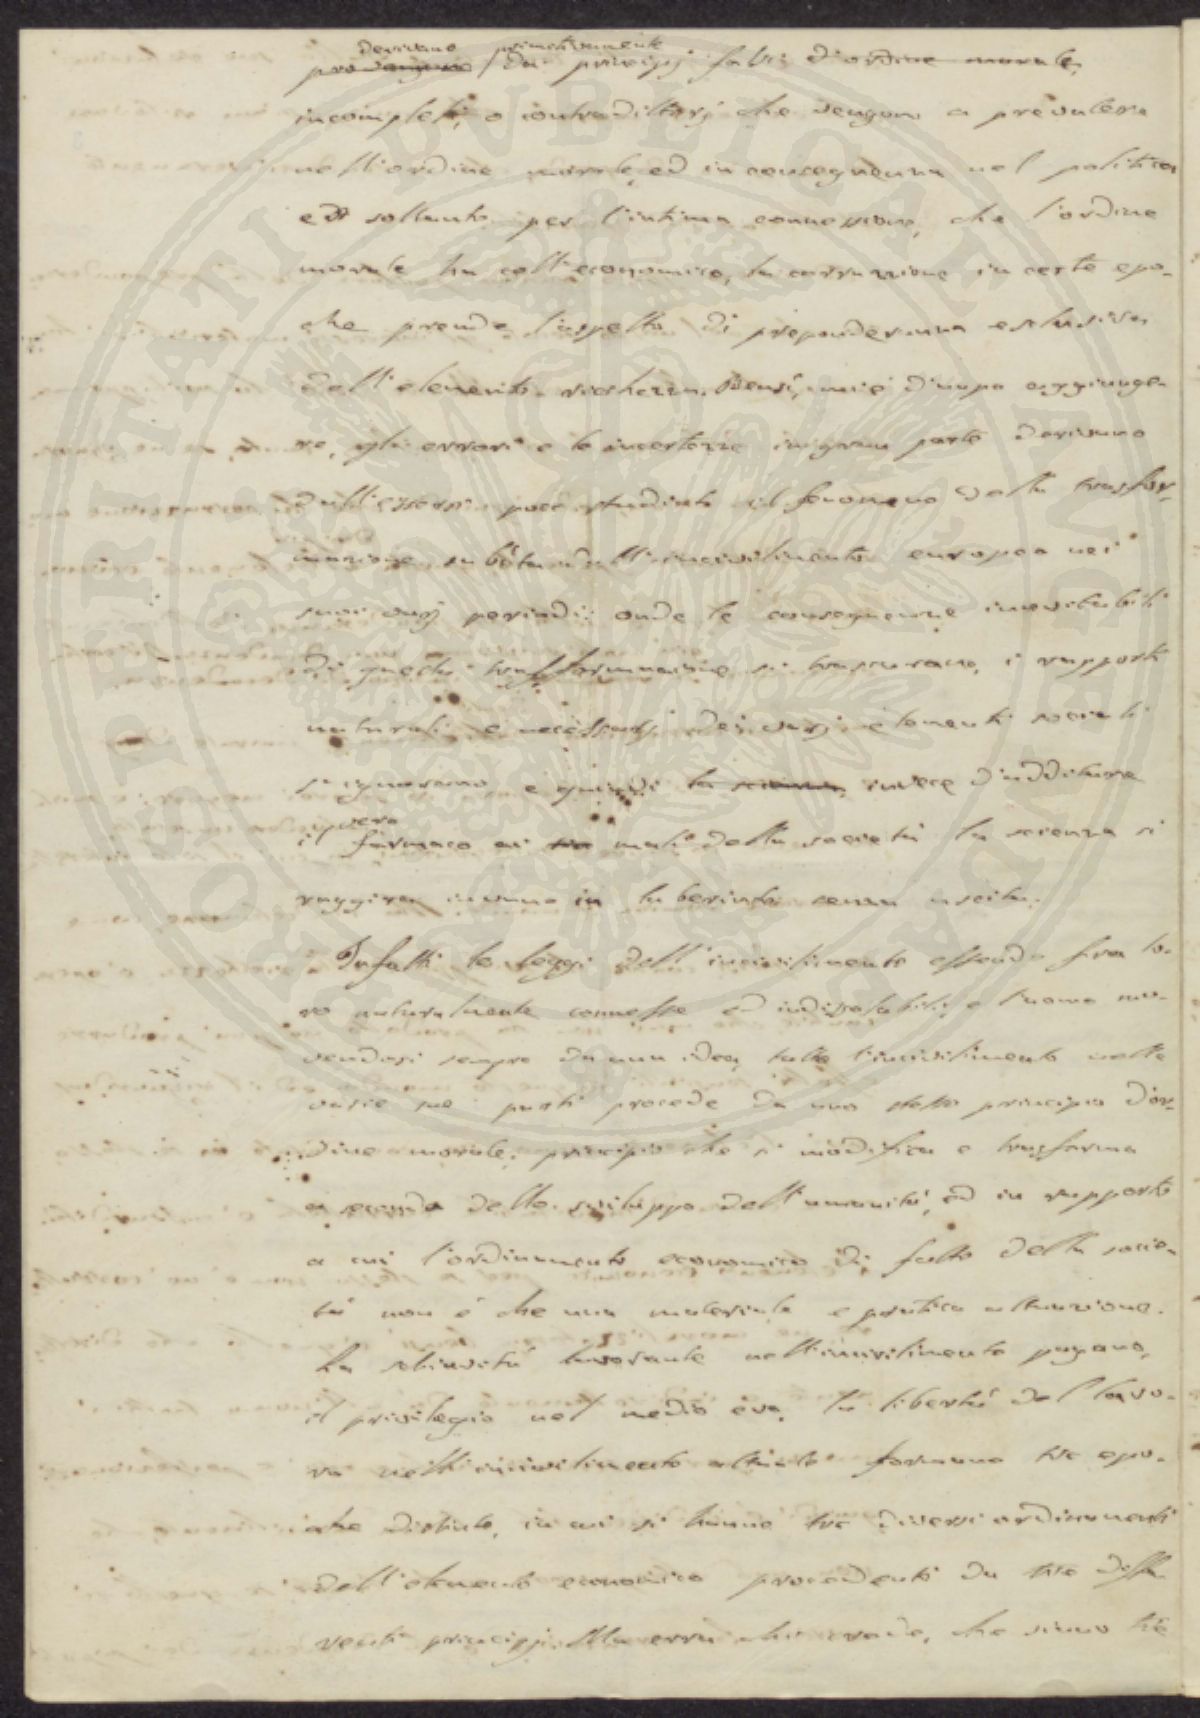 derivano primitivamente
provengono da principj falsi d'ordine morale,
incompleti, o contradittorj che vengono a prevalere
nell'ordine morale, ed in conseguenza nel politico,
ed soltanto per l'intima connessione, che l'ordine
morale ha coll'economico, la corruzione in certe epo-
che prende l'aspetto di preponderanza esclusiva
dell'elemento ricchezza. Bensì, mi è d'uopo aggiunge-
re, gli errori e le incertezze in gran parte derivano
dall'essersi poco studiato il fenomeno della trasfor-
mazione subita dall'incivilimento europeo nei
suoi varj periodi: onde le conseguenze inevitabili
di questa trasformazione si trascurano, i rapporti
naturali e necessarj dei varj elementi sociali
si ignorano e quindi la scienza, invece d'additare
vero
il farmaco ai mali della società la scienza si
raggira invano in laberinto senza uscita.
Infatti le leggi dell'incivilimento essendo fra lo-
ro naturalmente connesse ed indissolubili, e l'uomo mo-
vendosi sempre da una idea, tutto l'incivilimento nelle
varie sue parti procede da uno stesso principio d'or-
dine morale, principio che si modifica e trasforma
a seconda dello sviluppo dell'umanità, ed in rapporto
a cui l'ordinamento economico di fatto della socie-
tà non è che una materiale e pratica attuazione.
La schiavitù lavorante nell'incivilimento pagano,
il privilegio nel medio evo, la libertà del lavo-
ro nell'incivilimento attuale formano tre epo-
che distinte, in cui si hanno tre diversi ordinamenti
dell'elemento economico procedenti da tre diffe-
renti principj. Ma erra chi crede, che siano tre